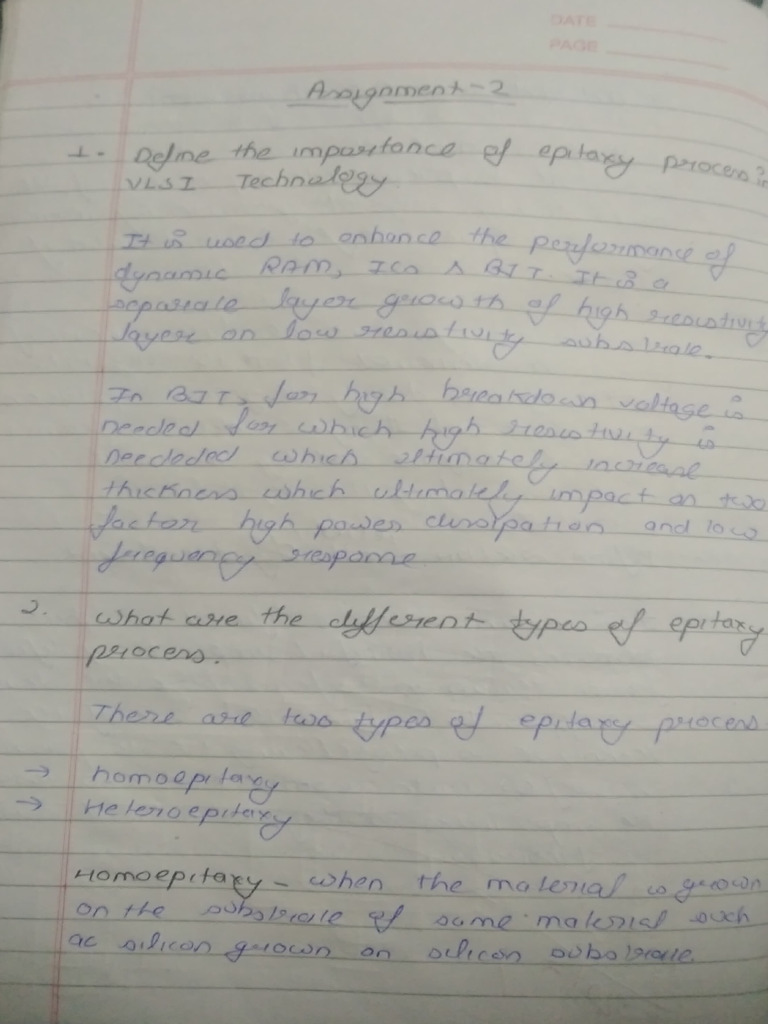 DATE
PAGE
Assignment-2
1. Define the importance of epitaxy process in
VLSI Technology
It is used to enhance the performance of
dynamic RAM, ICs & BJT. It is a
separate layer growth of high resistivity
layer on low resistivity substrate.
In BJT, for high breakdown voltage is
needed for which high resistivity is
neededed which ultimately increase
thickness which ultimately impact on two
factor high power dissipation and low
frequency response
2. What are the different types of epitaxy
process.
There are two types of epitaxy process
→ homoepitaxy
→ Heteroepitaxy
Homoepitaxy - when the material is grown
on the substrate of same material such
as silicon grown on silicon substrate.